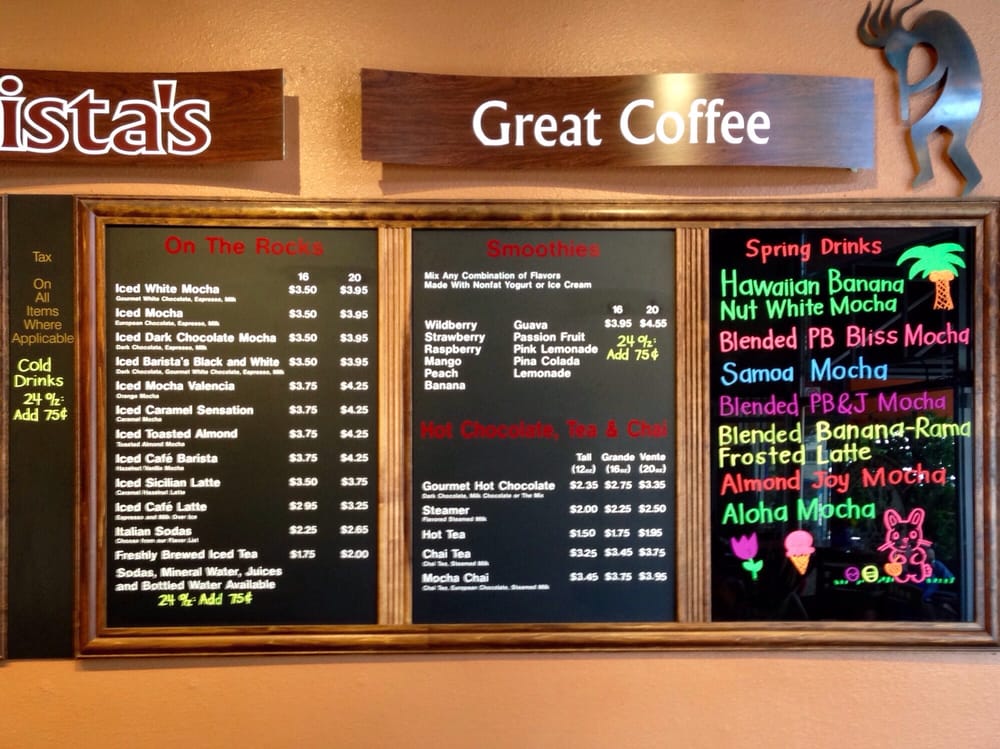 ista's
Great Coffee
Tax
On
All
Items
Where
Applicable
Cold
Drinks
24 oz:
Add 75¢
On The Rocks
16 20
Iced White Mocha $3.50 $3.95
Gourmet White Chocolate, Espresso, Milk
Iced Mocha $3.50 $3.95
European Chocolate, Espresso, Milk
Iced Dark Chocolate Mocha $3.50 $3.95
Dark Chocolate, Espresso, Milk
Iced Barista's Black and White $3.50 $3.95
Dark Chocolate, Gourmet White Chocolate, Espresso, Milk
Iced Mocha Valencia $3.75 $4.25
Orange Mocha
Iced Caramel Sensation $3.75 $4.25
Caramel Mocha
Iced Toasted Almond $3.75 $4.25
Toasted Almond Mocha
Iced Café Barista $3.75 $4.25
Hazelnut/Vanilla Mocha
Iced Sicilian Latte $3.50 $3.75
Caramel/Hazelnut Latte
Iced Café Latte $2.95 $3.25
Espresso and Milk Over Ice
Italian Sodas $2.25 $2.65
Choose from our Flavor List
Freshly Brewed Iced Tea $1.75 $2.00
Sodas, Mineral Water, Juices
and Bottled Water Available
24 oz: Add 75¢
Smoothies
Mix Any Combination of Flavors
Made With Nonfat Yogurt or Ice Cream
16 20
$3.95 $4.55
Wildberry Guava
Strawberry Passion Fruit
Raspberry Pink Lemonade
Mango Pina Colada
Peach Lemonade
Banana
24 oz:
Add 75¢
Hot Chocolate, Tea & Chai
Tall Grande Vente
(12oz) (16oz) (20oz)
Gourmet Hot Chocolate $2.35 $2.75 $3.35
Dark Chocolate, Milk Chocolate or The Mix
Steamer $2.00 $2.25 $2.50
Flavored Steamed Milk
Hot Tea $1.50 $1.75 $1.95
Chai Tea $3.25 $3.45 $3.75
Chai Tea, Steamed Milk
Mocha Chai $3.45 $3.75 $3.95
Chai Tea, European Chocolate, Steamed Milk
Spring Drinks
Hawaiian Banana
Nut White Mocha
Blended PB Bliss Mocha
Samoa Mocha
Blended PB&J Mocha
Blended Banana-Rama
Frosted Latte
Almond Joy Mocha
Aloha Mocha